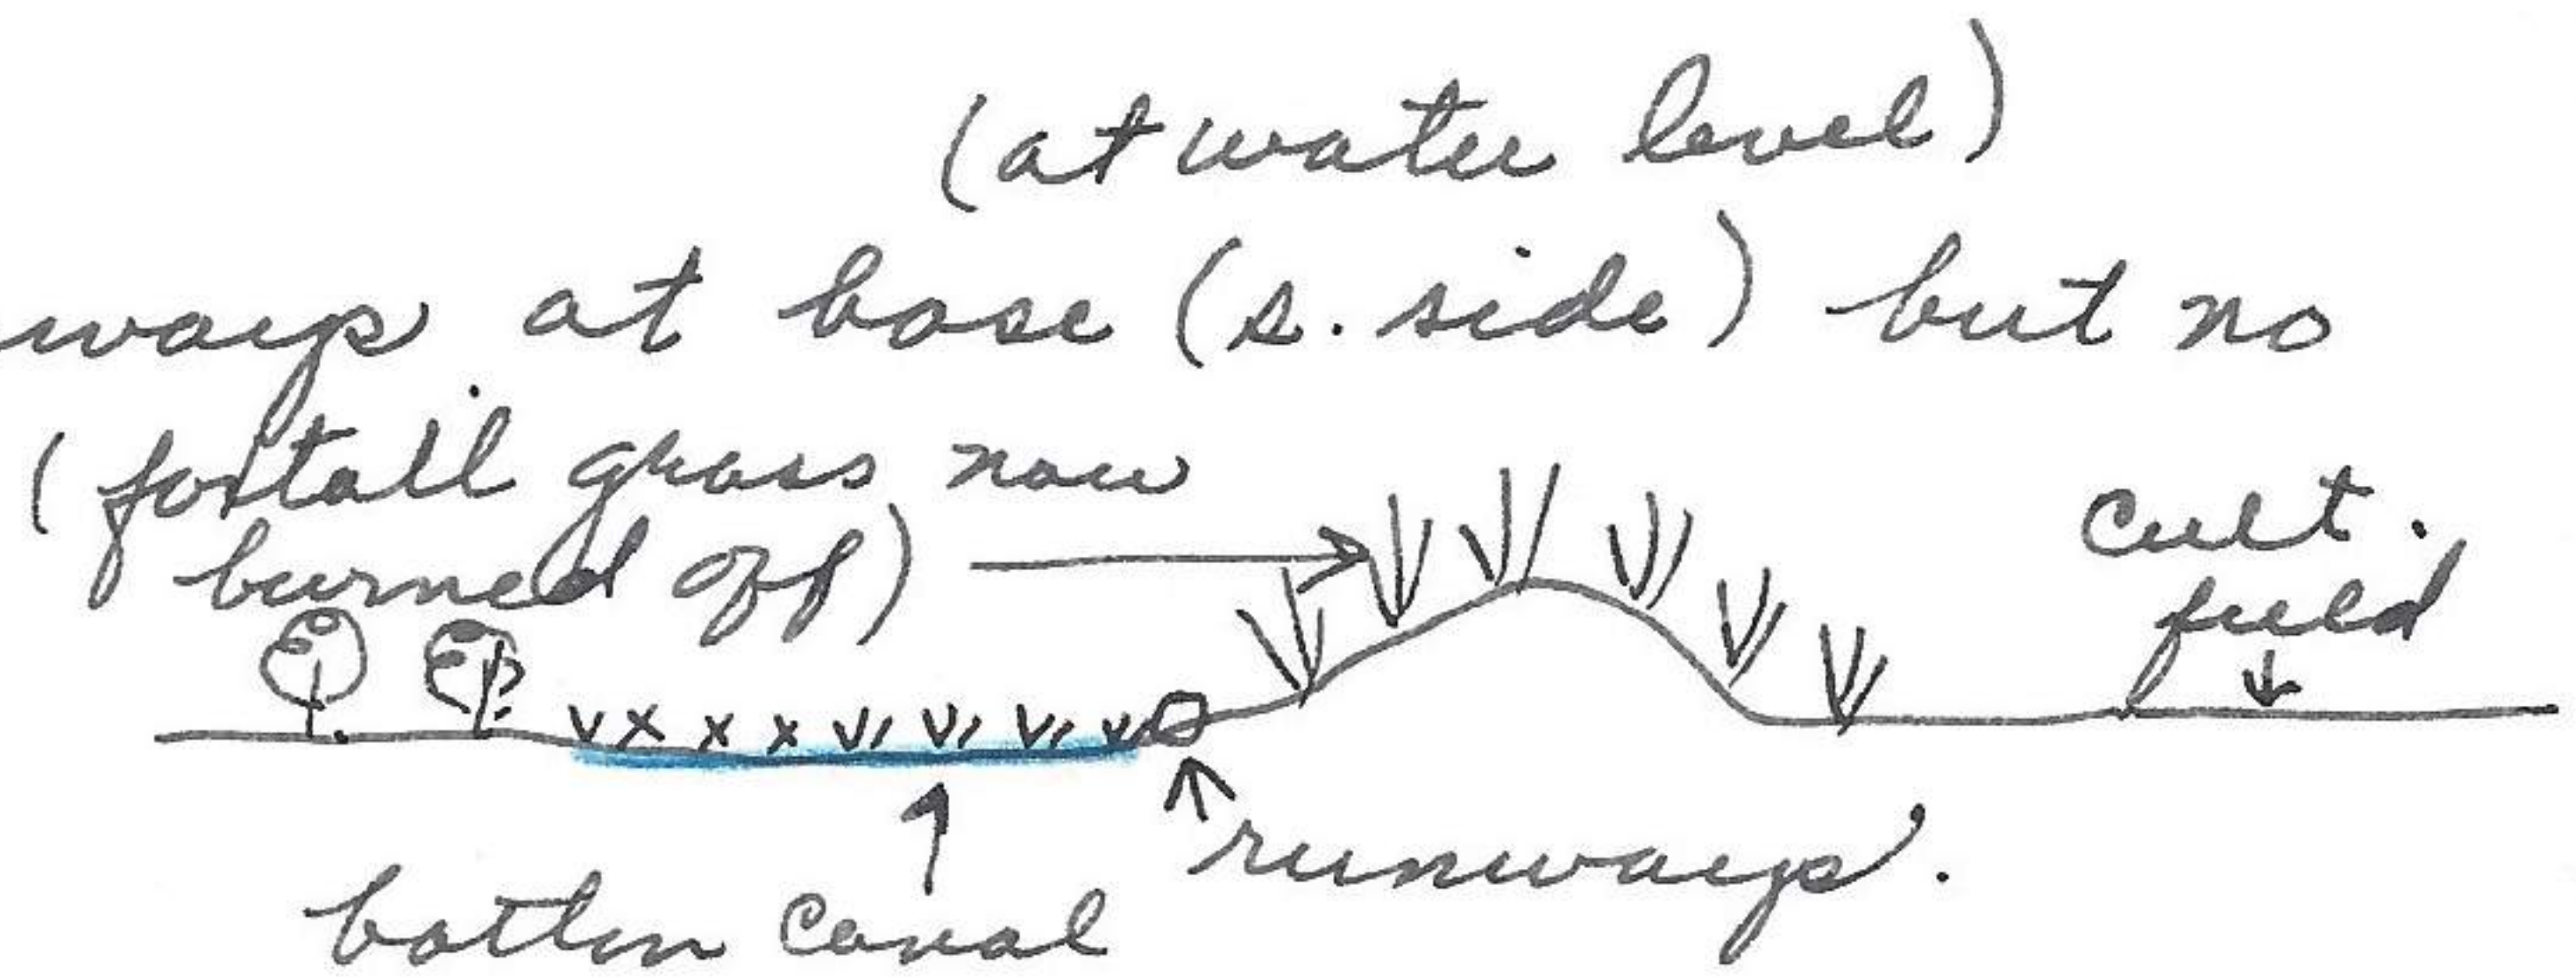 (at water level)
ways at base (s. side) but no
(foxtail grass now
burned off)
cult.
field
runways.
bottom canal